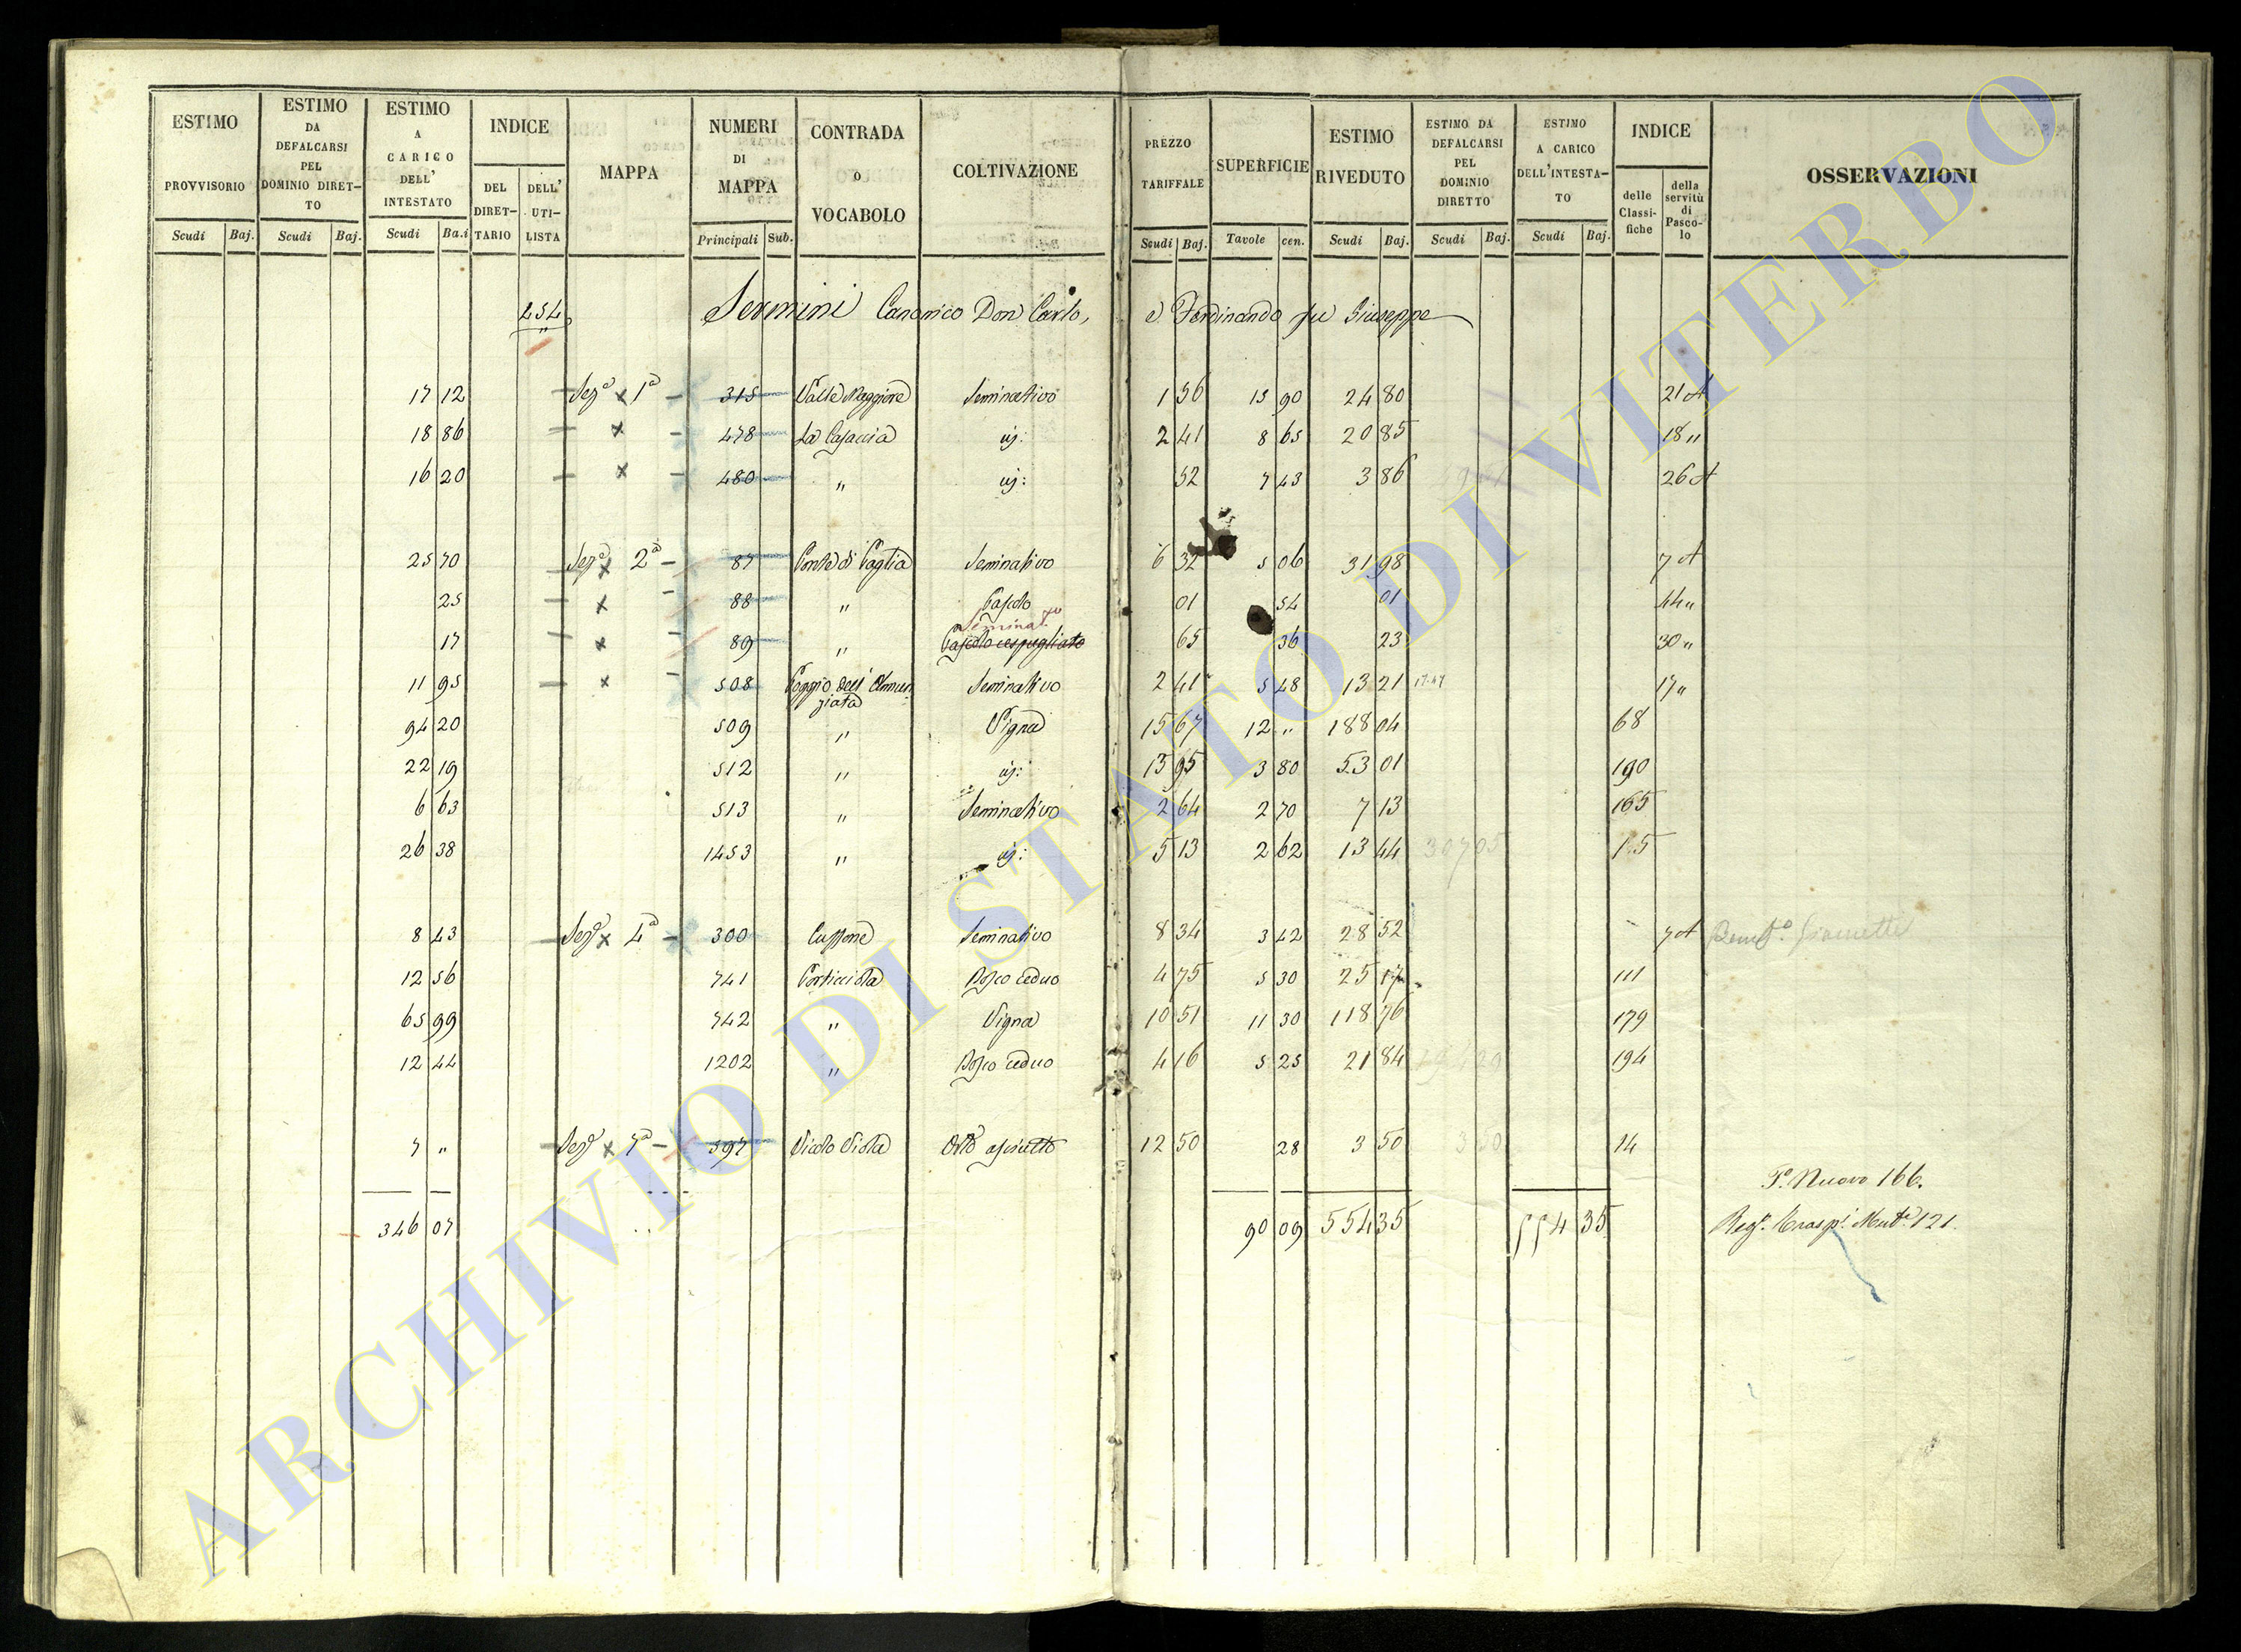 ESTIMO PROVVISORIO Scudi Baj.
ESTIMO DA DEFALCARSI PEL DOMINIO DIRET- TO Scudi Baj.
ESTIMO A CARICO DELL' INTESTATO Scudi Ba.i
INDICE DEL DIRET- TARIO DELL' UTI- LISTA
MAPPA
NUMERI DI MAPPA Principali Sub.
CONTRADA O VOCABOLO
COLTIVAZIONE
PREZZO TARIFFALE Scudi Baj.
SUPERFICIE Tavole cen.
ESTIMO RIVEDUTO Scudi Baj.
ESTIMO DA DEFALCARSI PEL DOMINIO DIRETTO Scudi Baj.
ESTIMO A CARICO DELL'INTESTA- TO Scudi Baj.
INDICE delle Classi- fiche della servitù di Pasco- lo
OSSERVAZIONI
254 Sermini Canonico Don Carlo, e Ferdinando fu Giuseppe
17 12 Sez.a x 1a 315 Valle Maggiore Seminativo 1 56 15 90 24 80 21 A
18 86 x 478 La Casaccia id: 2 41 8 65 20 85 18 "
16 20 x 480 " id: 52 7 43 3 86 26 A
25 70 Sez.a x 2a 87 Ponte di Paglia Seminativo 6 32 5 06 31 98 7 A
25 x 88 " Pascolo 01 54 01 44 "
Seminat.vo
17 x 89 " Pascolo cespugliato 65 36 23 30 "
11 95 x 508 Poggio dell' Annun- Seminativo 2 41 5 48 13 21 17 "
ziata
94 20 509 " Vigna 15 67 12 " 188 04 68
22 19 512 " id: 13 95 3 80 53 01 190
6 63 513 " Seminativo 2 64 2 70 7 13 165
26 38 1453 " id: 5 13 2 62 13 44 307 05
8 43 Sez.a x 4a 300 Cuppone Seminativo 8 34 3 42 28 52 7 A
12 56 741 Porticciola Bosco ceduo 4 75 5 30 25 17 111
65 99 742 " Vigna 10 51 11 30 118 76 179
12 44 1202 " Bosco ceduo 4 16 5 25 21 84 194
7 " Sez.a x 7a 597 Vicolo Viola Orto asciutto 12 50 28 3 50 3 50 14
P.o Nuovo 166.
346 07 90 09 554 35 554 35 Reg.o Trasp.i Mut.e 121
ARCHIVIO DI STATO DI VITERBO